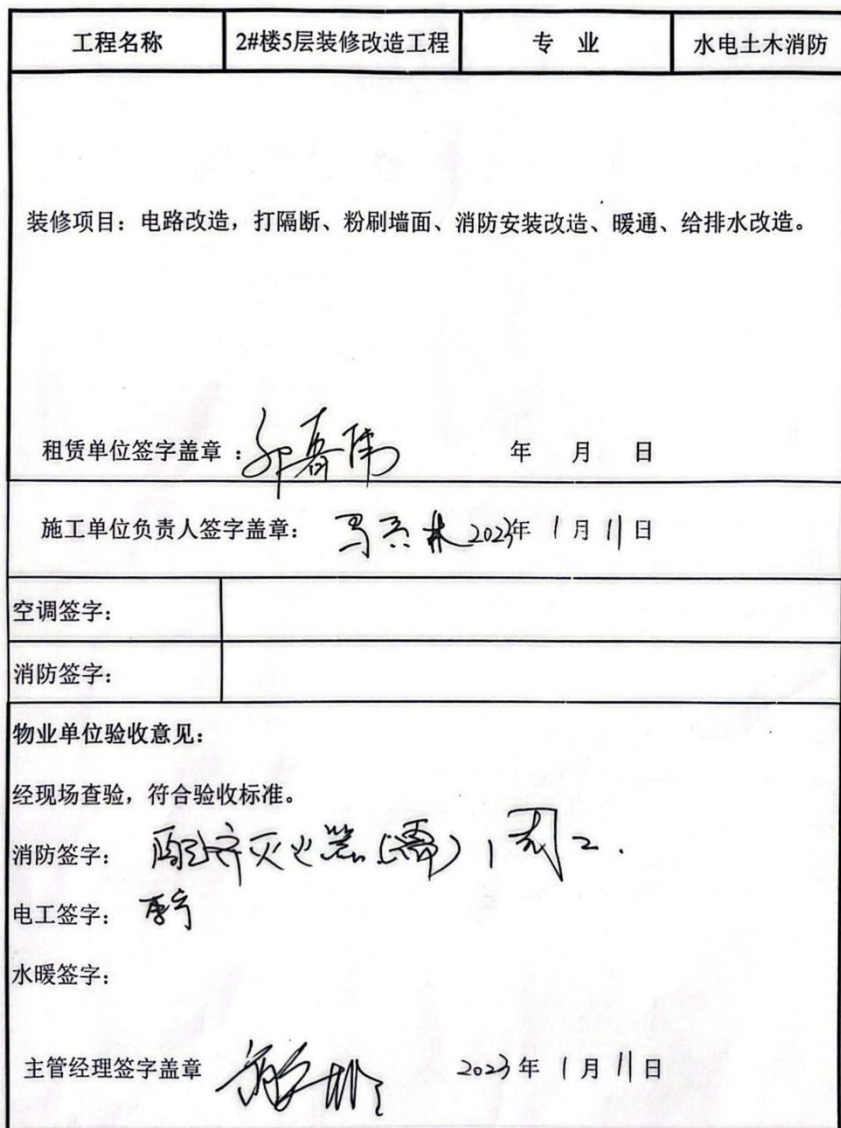 工程名称 2#楼5层装修改造工程 专 业 水电土木消防
装修项目：电路改造，打隔断、粉刷墙面、消防安装改造、暖通、给排水改造。
租赁单位签字盖章： 年 月 日
施工单位负责人签字盖章： 2023年 1月 11日
空调签字：
消防签字：
物业单位验收意见：
经现场查验，符合验收标准。
消防签字： 配齐灭火器
电工签字：
水暖签字：
主管经理签字盖章 2023年 1月 11日